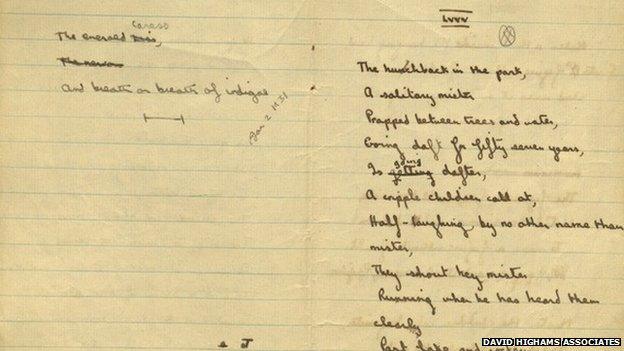 caress
The emerald kiss,
The nervous
And breath on breath of indigoe
Jan 2 1931
LVVV
The hunchback in the park,
A solitary mister
Propped between trees and water,
Going daft for fifty seven years,
going
Is getting dafter,
A cripple children call at,
Half-laughing, by no other name than
mister,
They shout hey mister
Running when he has heard them
clearly
Past lake and
J
DAVID HIGHAMS ASSOCIATES